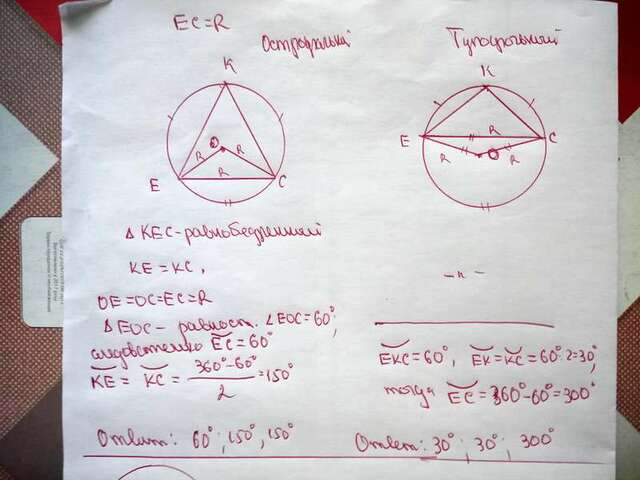 EC=R
Остроугольный
Тупоугольный
K
O
R
R
R
E
C
K
E
R
C
R
O
R
Δ KEC-равнобедренный
KE = KC,
OE=OC=EC=R
Δ EOC - равност. ∠EOC=60°;
следовательно ÉC=60°
KE = KC = 360°-60° / 2 = 150°
Ответ: 60°; 150°; 150°
-"-
EKC=60°, EK=KC=60°:2=30°,
тогда EC=360°-60°=300°
Ответ: 30°; 30°; 300°